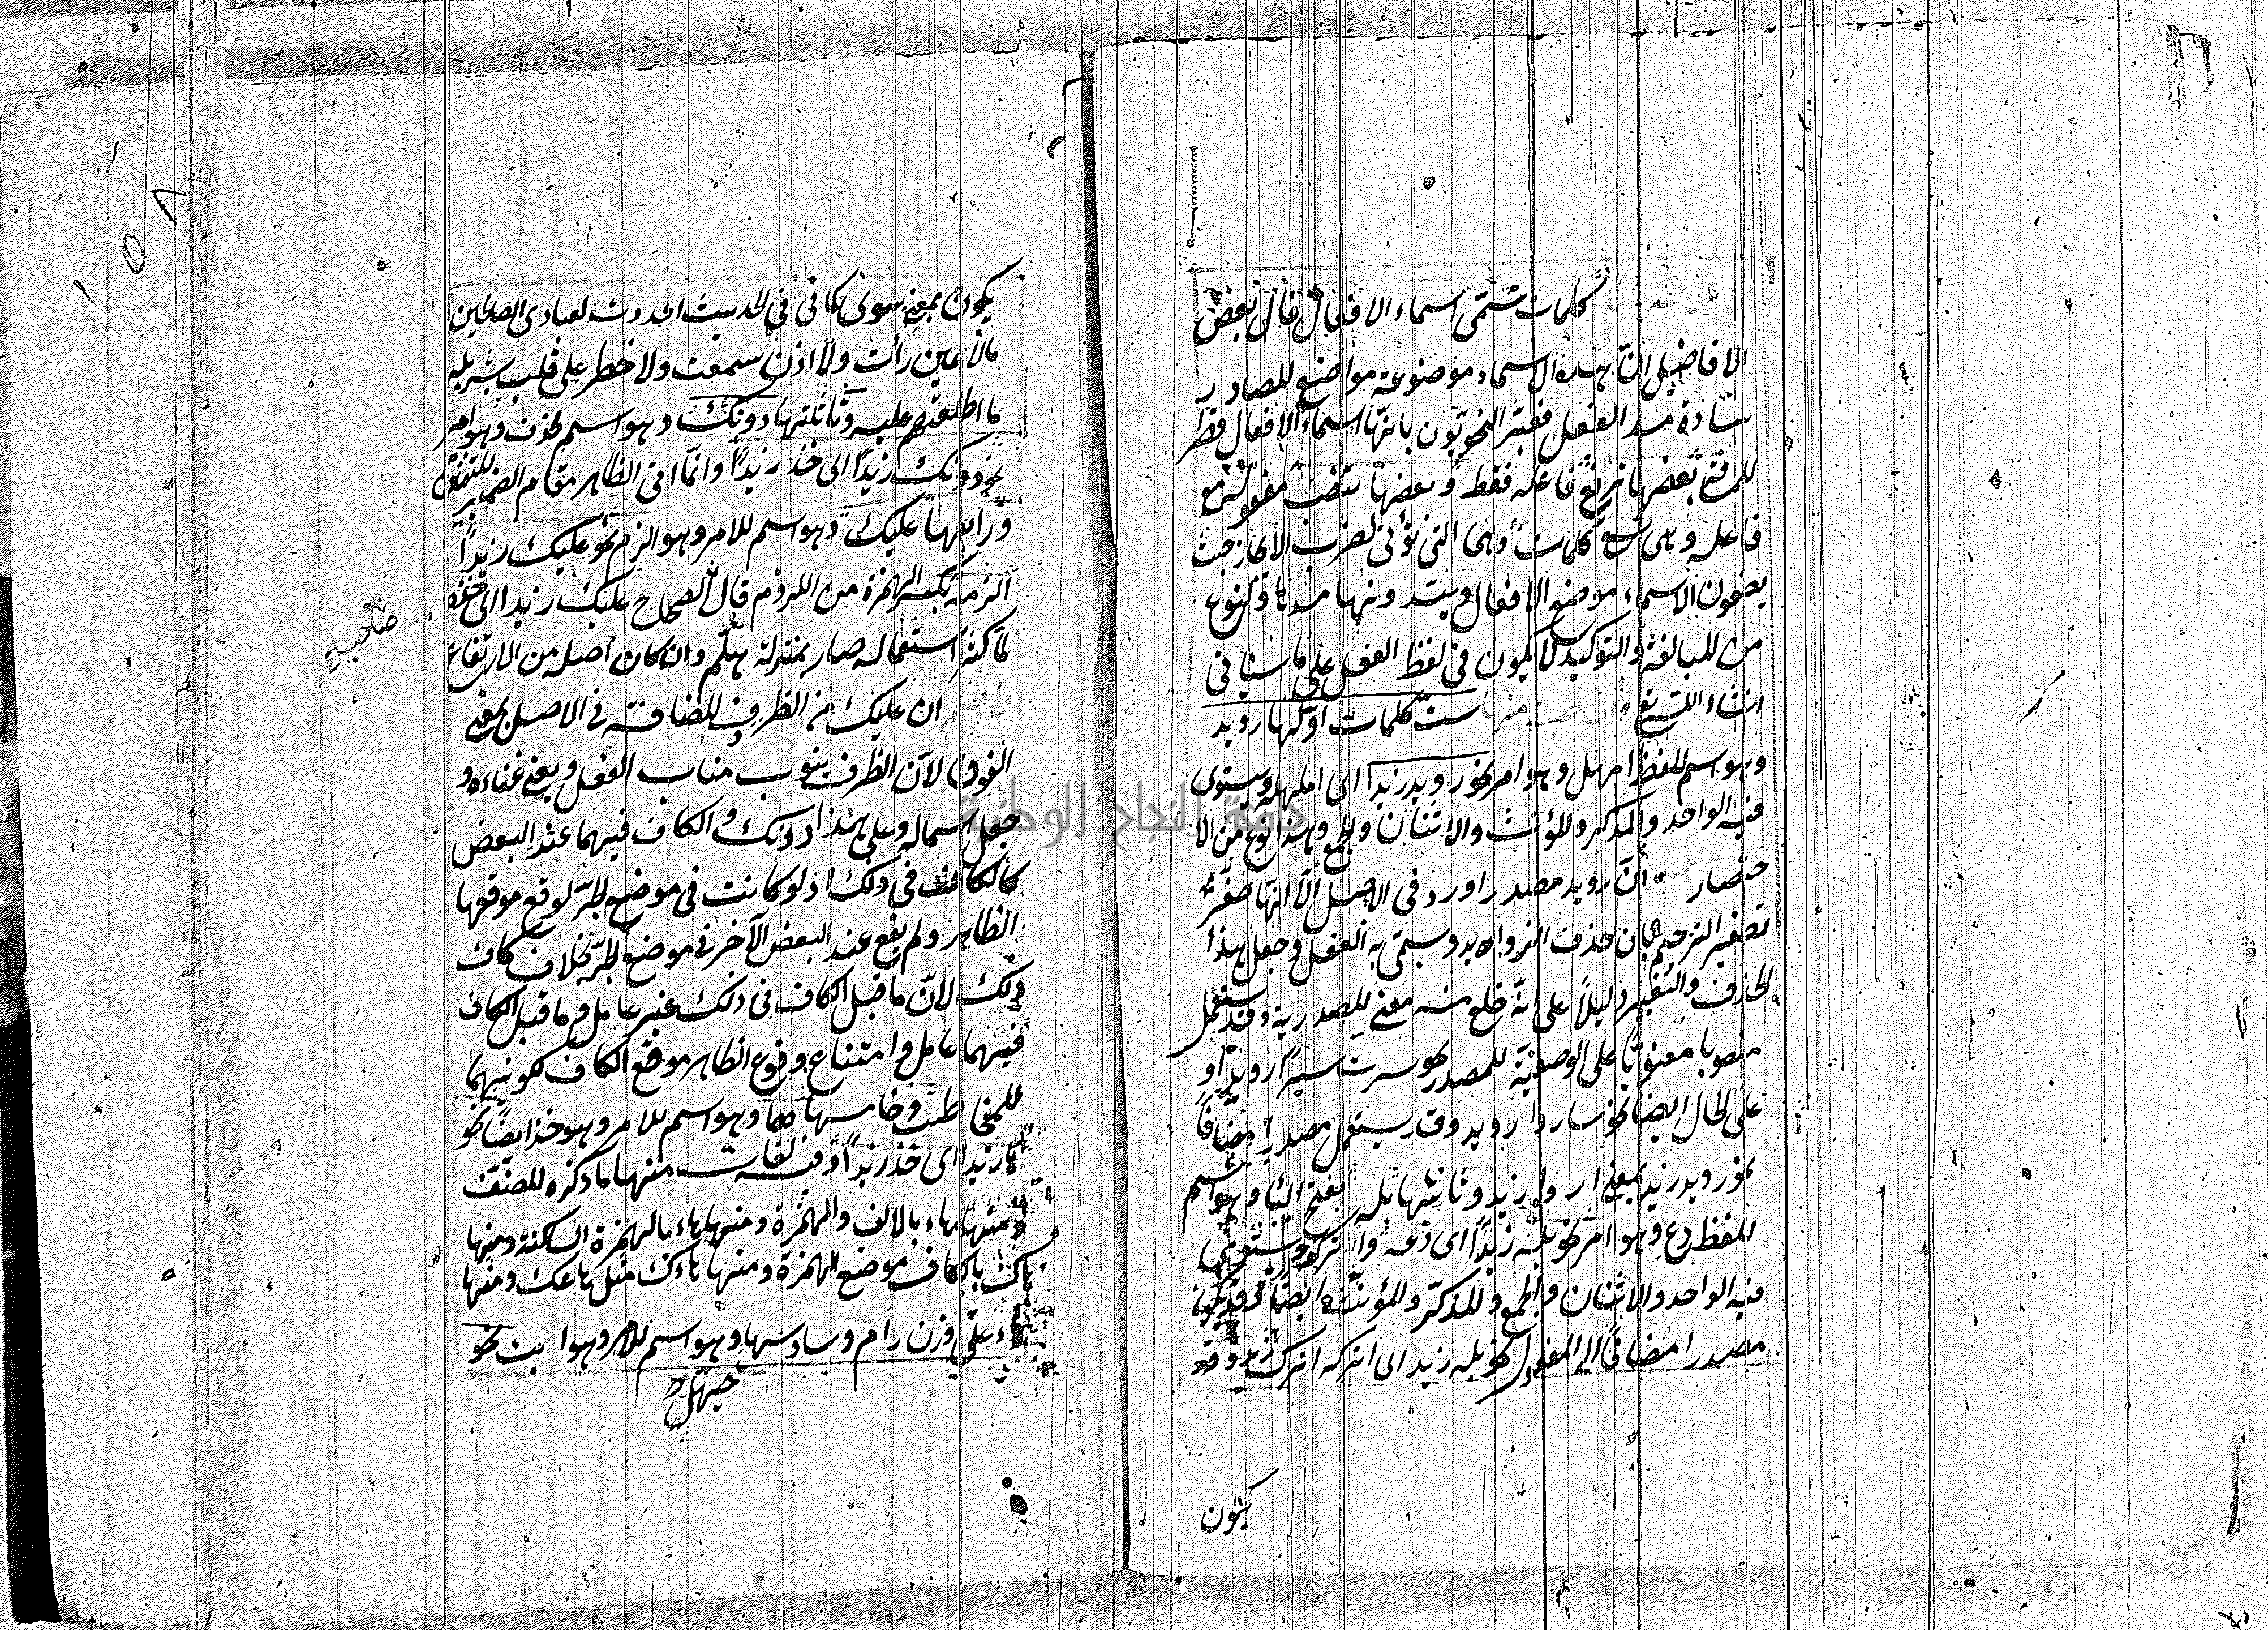 كلمات تسمّى اسماء الافعال قال بعض
الافاضيل انّ هذه الاسماء موضوعة مواضع للمصادر
سادة مسد الفعل فعبّر النحويّون بانّها اسماء الافعال
بعضها ترفع فاعله فقط وبعضها تنصب مفعولہ مع
فاعله وهى تسع كلمات وهى التى تؤتى لضرب الايجاز حيث
يضعون الاسماء موضع الافعال ونوع
من المبالغة والتوكيد لا يكون فى لفظ الفعل على ما سيأتى فى
ست كلمات اوّلها رويد
وهو اسم للفظ امهل وهو امر نحو رويد زيدا اى امهله ويستوى
فيه الواحد والمذكر والمؤنث والاثنان والجمع وهذا نوع من الا
ختصار انّ رويد مصدر اورد فى الاصل الّا انها صغّر
تصغير الترخيم بان حذف الزوائد وسمّى به الفعل وجعل هذا
الحذف والتغيير دليلًا على انّه خلع منه معنى المصدرية وقد يستعمل
منصوبا على الوصفيّة للمصدر نحو سرت سيرًا رويدًا او
على الحال ايضا نحو ساروا رويدا وقد يستعمل مصدرا مضافًا
نحو رويد زيد بمعنى ارواد زيد وثانيها بله بفتح وهو اسم
للفظ دع وهو امر نحو بله زيدًا اى دعه واتركه ويستوى
فيه الواحد والاثنان والجمع والمذكّر والمؤنّث ايضًا وقد يكون
مصدرا مضافًا الى المفعول نحو بله زيد اى اتركه اترك زيد وقد
يكون
يكون بمعنى سوى كما فى فى الحديث اعددت لعبادى الصالحين
مالا عين رأت ولا اذن سمعت ولا خطر على قلب بشر بله
ما اطلعتهم عليه وثالثتها دونك وهو اسم لخذ وهو امر
نحو دونك زيدًا اى خذ زيدًا وانّما اقى الظاهر مقام الضمير
ورابعها عليك وهو اسم للامر وهو الزم نحو عليك زيدًا
الزمه بكسر الهمزة من اللزوم قال الصحاح عليك زيدا اى خذه
لمّا كثر استعماله صار بمنزلة هلّم وان كان اصله من الارتفاع
ان عليك من الظروف المضافة فى الاصل بمعنى
الفوق لانّ الظرف ينوب مناب الفعل ويغنى غناءه و
جعل اسما له وعلى هذا دونك والكاف فيهما عند البعض
كالكاف فى ذلك اذ لو كانت فى موضع الجرّ لوقع موقعها
الظاهر ولم يقع عند البعض الآخر فى موضع الجرّ بخلاف كاف
ذلك لانّ ما قبل الكاف فى ذلك غير عامل وما قبل الكاف
فيهما عامل وامتناع وقوع الظاهر موضع الكاف لكونهما
للمخاطب وخامسها ها وهو اسم للامر وهو خذ ايضًا نحو
ها زيدا اى خذ زيدًا وفيه لغات منها ما ذكره المصنّف
ومنها هاء بالالف والهمزة ومنها هاء بالهمزة الساكنة ومنها
هاك بالكاف موضع الهمزة ومنها هاءك مثل هاعك ومنها
هاء على وزن رام وسادسها وهو اسم للامر وهو ايت نحو
حيهل